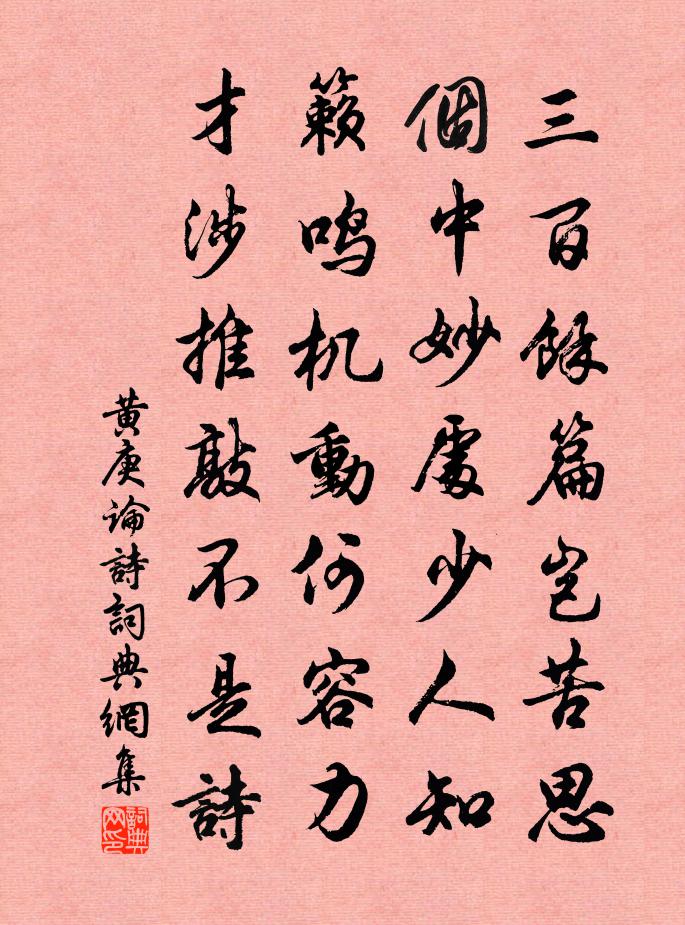 三百餘篇豈苦思
個中妙處少人知
籟鳴机動何容力
才涉推敲不是詩
黄庚论詩詞典網集
詞典网印